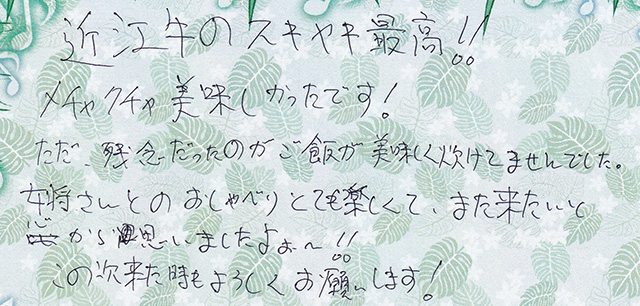 近江牛のスキヤキ最高!!
メチャクチャ美味しかったです!
ただ、残念だったのがご飯が美味しく炊けてませんでした。
女将さんとのおしゃべりとても楽しくて、また来たいと
心から思いましたよぉ〜!!
この次来た時もよろしくお願いします!